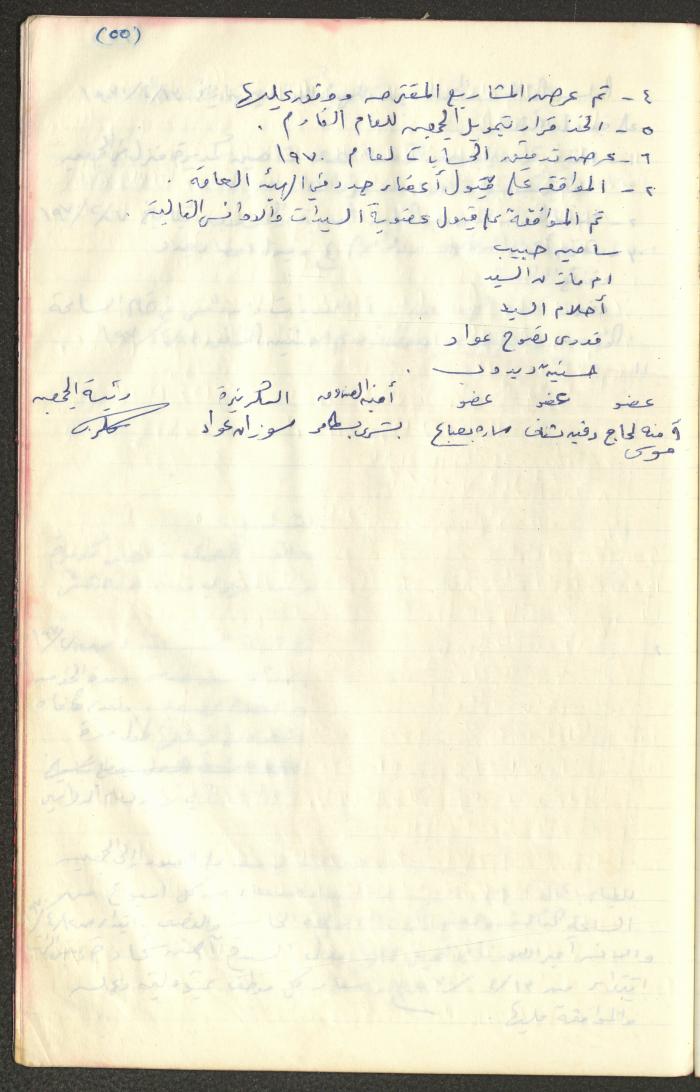 (٥٥)
٤ - تم عرض المشاريع المقترحه ووفق عليها
٥ - اتخذ قرار تمويل الجمعيه للعام القادم .
٦ - عرض تدقيق الحسابات لعام ١٩٧٠
٢ - الموافقه على قبول أعضاء جدد في الهيئه العامة .
تم الموافقة على قبول عضوية السيدات والاوانس التالية .
ساميه حبيب
ام مازن السيد
أحلام السيد
قدرى نصوح عواد
حسنية
عضو عضو عضو أمينة الصندوق السكرتيرة رئيسة الجمعيه
آمنه الحاج موسى رفيده ساره بشرى سوزان عواد